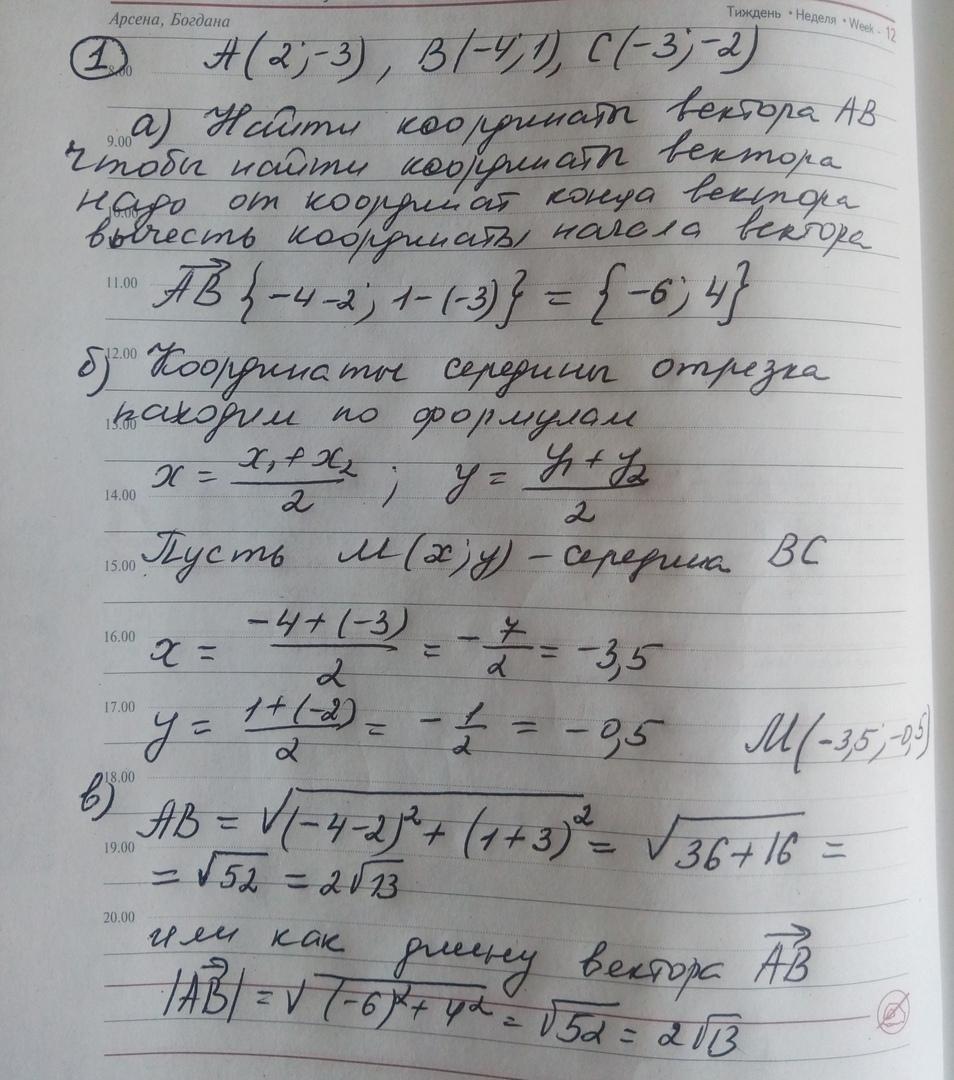 Арсена, Богдана
Тиждень • Неделя • Week - 12
1 A(2;-3), B(-4;1), C(-3;-2)
8.00
а) Найти координаты вектора AB
9.00
Чтобы найти координаты вектора
надо от координат конца вектора
10.00
вычесть координаты начала вектора
11.00
AB {-4-2; 1-(-3)} = {-6; 4}
12.00
б) Координаты середины отрезка
находим по формулам
13.00
x = (x₁+x₂)/2 ; y = (y₁+y₂)/2
14.00
Пусть M(x;y) - середина BC
15.00
x = (-4+(-3))/2 = -7/2 = -3,5
16.00
17.00
y = (1+(-2))/2 = -1/2 = -0,5 M(-3,5;-0,5)
18.00
в)
AB = √((-4-2)²+(1+3)²) = √(36+16) =
19.00
= √52 = 2√13
20.00
или как длину вектора AB
|AB| = √((-6)²+4²) = √52 = 2√13